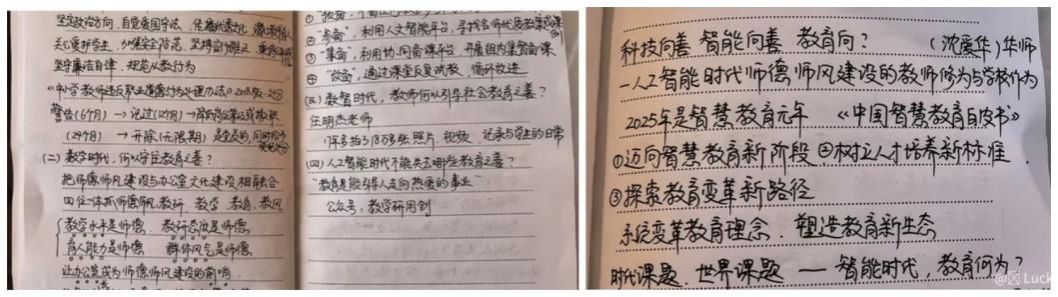 坚定政治方向、自觉爱国守法、传播优秀文化、潜心教书育人
关心爱护学生、加强安全防范、坚持言行雅正、秉持公平诚信
坚守廉洁自律、规范从教行为
《中小学教师违反职业道德行为处理办法》2018版 处分
警告(6个月) → 记过(12个月) → 降低岗位等级或撤职
(24个月) → 开除(无限期) 是党员的,同时给予
(二) 数字时代,何以守住教育之善?
把师德师风建设与办公室文化建设相融合
四位一体抓师德师风 教研、教学、教育、教风
教学水平是师德 教研态度是师德
育人能力是师德 群体风气是师德
让办公室成为师德师风建设的前哨
②"参备",利用人工智能平台,寻找名师优质教案或课例
③"集备",利用协同备课平台,开展组内集智备课
④"改备",通过课堂反复试教,循环改进
(三) 数智时代,教师何以引导社会教育之善?
任明杰老师
1年多拍了18万多张照片、视频,记录与学生的日常
(四) 人工智能时代不能失去哪些教育之善?
"教育是能引导人走向热爱的事业"
公众号:教学研用创
科技向善 智能向善 教育向? (沈爱华)华师
—人工智能时代师德师风建设的教师修为与学校作为
2025年是智慧教育元年 《中国智慧教育白皮书》
①迈向智慧教育新阶段 ②树立人才培养新标准
③探索教育变革新路径
系统变革教育理念、塑造教育新生态
时代课题、世界课题 — 智能时代,教育何为?